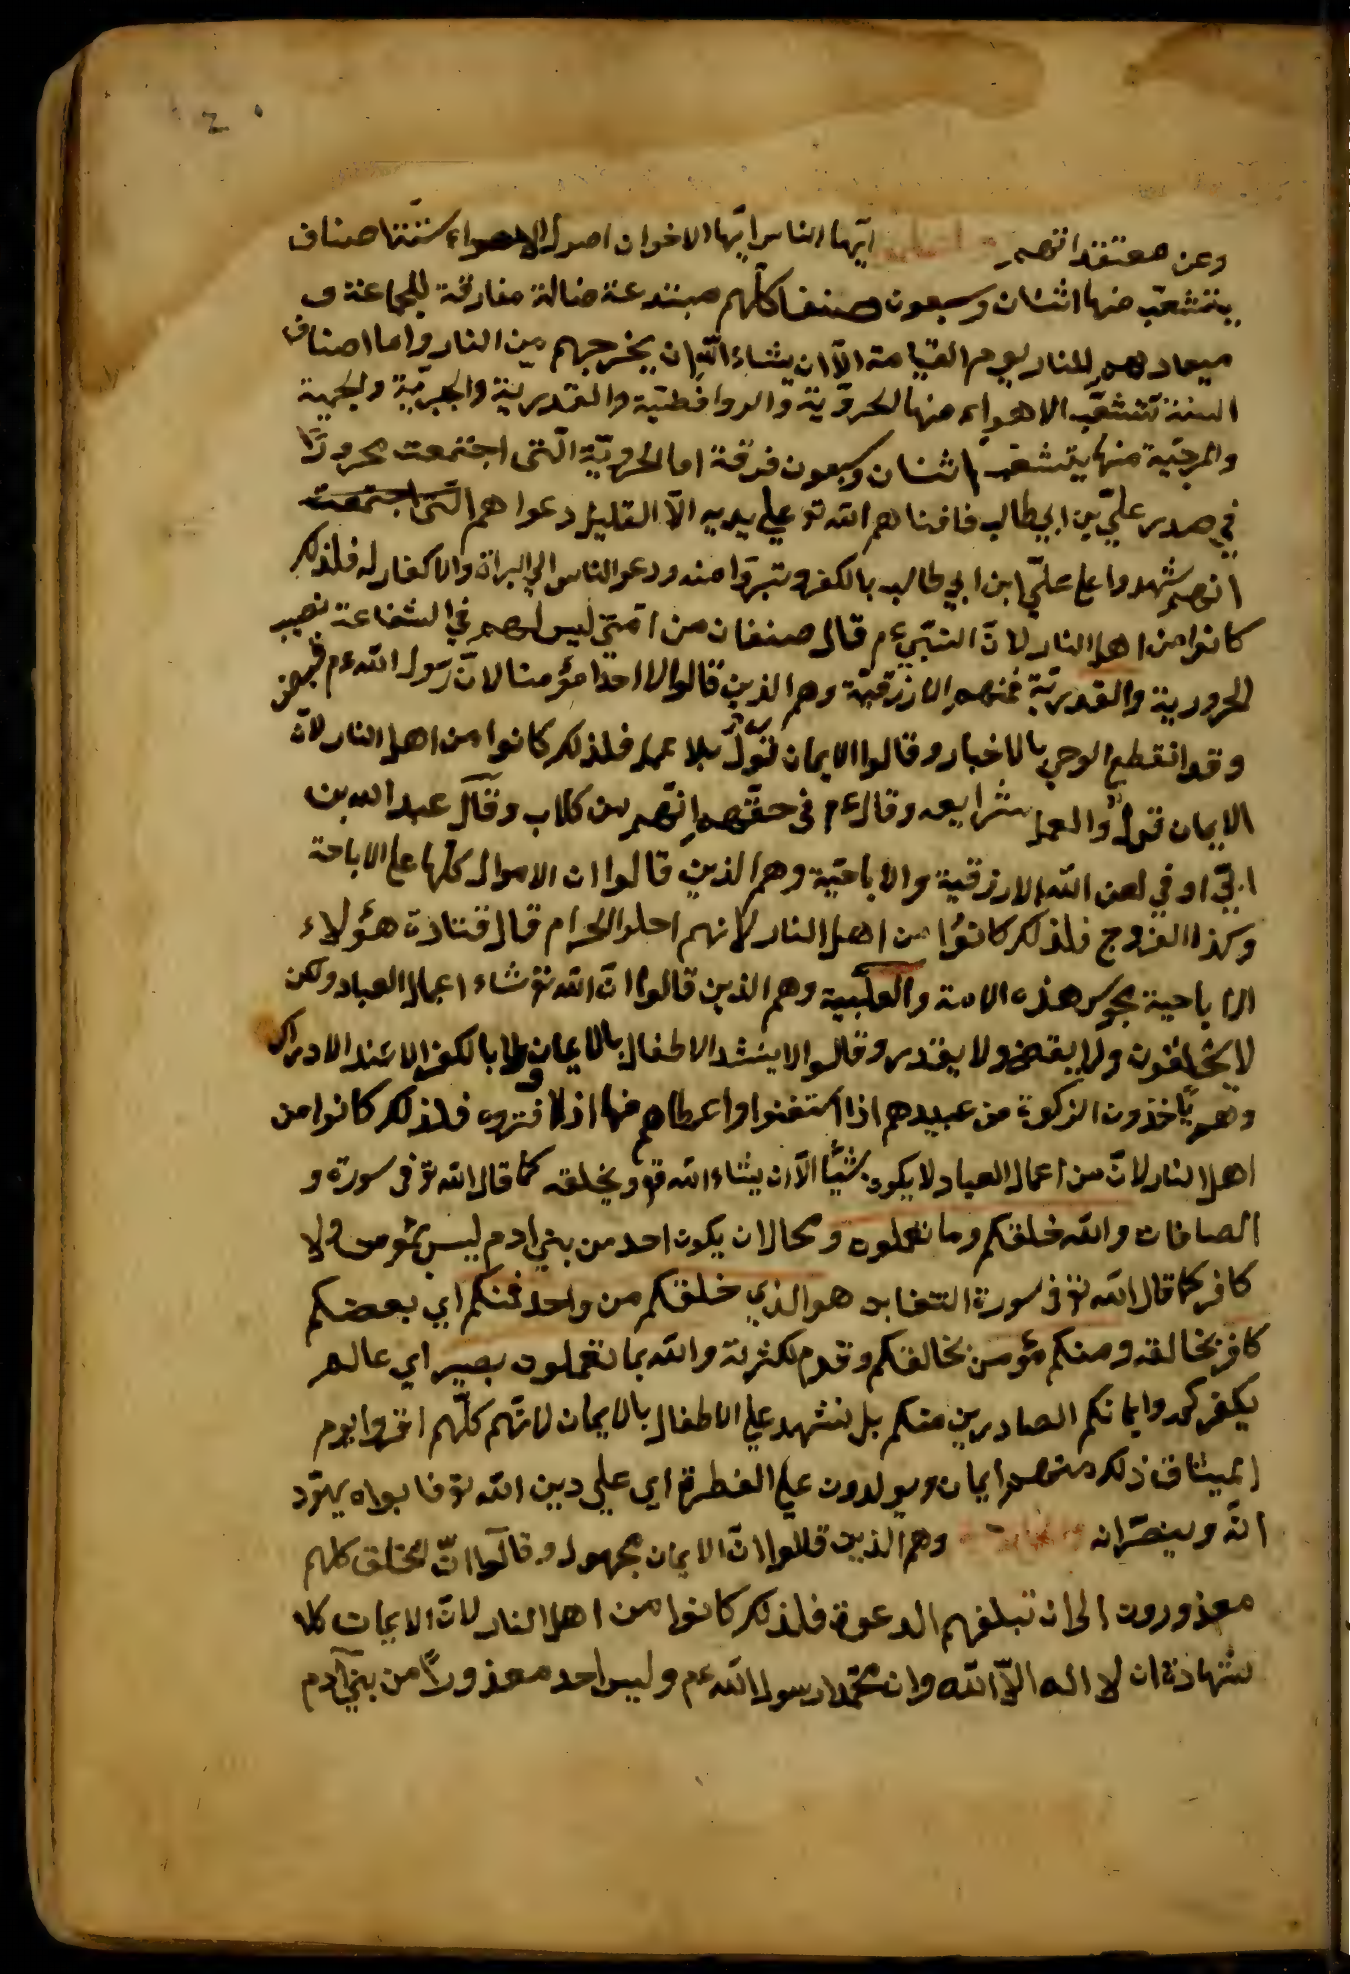 وعن معتقداتهم ايّها الناس ايّها الاخوان اصول الاهواء ستّة اصناف
يتشعّب منها اثنان وسبعون صنفا كلّهم مبتدعة ضالة مفارقة للجماعة و
ميعادهم للنار يوم القيامة الاّ ان يشاء اللّه ان يخرجهم من النار واما اصناف
الستة تتشعّب الاهواء منها الحروّية والروافضيّة والقدرية والجبريّة والجهمية
والمرجئية منها يتشعب اثنان وسبعون فرقة اما الحروريّة الّتى اجتمعت بحرورًا
في صدر عليّ بن ابي طالب فافناهم اللّه تع علي يديه الاّ القليل دعواهم الّتى اجتمعت
انهم شهدوا على عليّ ابن ابي طالب بالكفر وتبرّوا منه ودعو الناس الي البراة والاكفار له فلذلك
كانوا من اهل النار لانّ النبّيءم قال صنفان من امّتي ليس لهم في الشفاعة نصيب
الحرورية والقدريّة فمنهم الازرقيّة وهم الذين قالوا لا احدا مؤمنا لانّ رسول اللّه ءم قبض
وقد انقطع الوحى بالاخبار وقالوا الايمان قولٌ بلا عمل فلذلك كانوا من اهل النار لانّ
الايمان قولٌ والعمل شرايعه وقال ءم فى حقّهم انّهم من كلاب وقال عبد اللّه بن
ابيّ اوفي لعن اللّه الارزقية والاباحيّة وهم الذين قالوا ان الاموال كلّها على الاباحة
وكذا الفروج فلذلك كانوُا من اهل النار لانهم احلوا الحرام قال قتادة هؤلاء
الاباحية مجوس هذه الامة والعلّبية وهم الذين قالوا انّ اللّه تع شاء اعمال العباد ولكن
لا يخلقون ولا يقضى ولا يقدر وقالوا لا ينشد الاطفال بالايمان ولا بالكفر الا عند الادراك
وهم يأخذون الزكوة من عبيدهم اذا استغنوا واعطاهم منها اذا افتروه فلذلك كانوا من
اهل النار لانّ من اعمال العباد لا يكون شئًا الاّ ان يشاء اللّه تع ويخلقه كما قال اللّه تع فى سورة و
الصافات واللّه خلقكم وما تعملون ومحالا ان يكون احد من بني ادم ليس بمؤمن ولا
كافر كما قال اللّه تع فى سورة التغابن هو الذي خلقكم من واحد فمنكم اي بعضكم
كافر بخالقه ومنكم مؤمن بخالقكم وقدم لكثرته واللّه بما تعملون بصير اي عالم
بكفركم وايمانكم الصادرين منكم بل نشهد علي الاطفال بالايمان لانّهم كلّهم اقروا يوم
الميثاق ذلك منهم ايمان ويولدون على الفطرة اي علي دين اللّه تع فابواه يهوّد
انّه وينصّرانه وهم الذين قالوا انّ الايمان مجهول وقالوا انّ الخلق كلهم
معذورون الى ان تبلغهم الدعوة فلذلك كانوا من اهل النار لانّ الايمان كلا
شهادة ان لا اله الاّ اللّه وان محمّدا رسول اللّه ءم وليس احد معذورًا من بني آدم